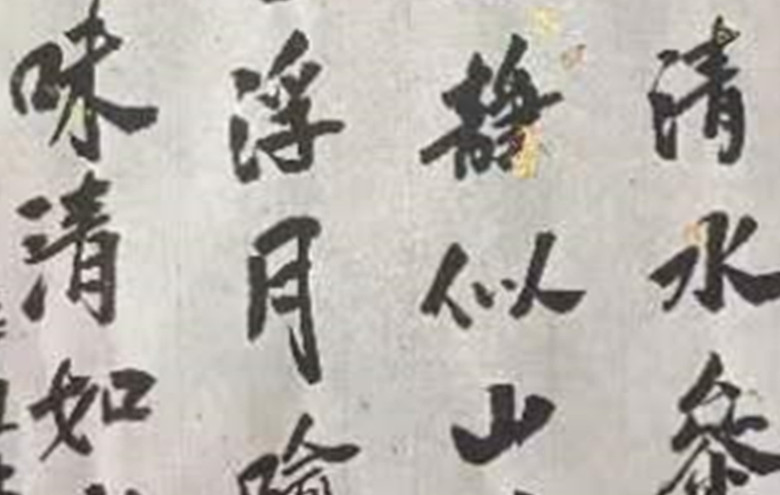 清水
静似山
浮月
味清如